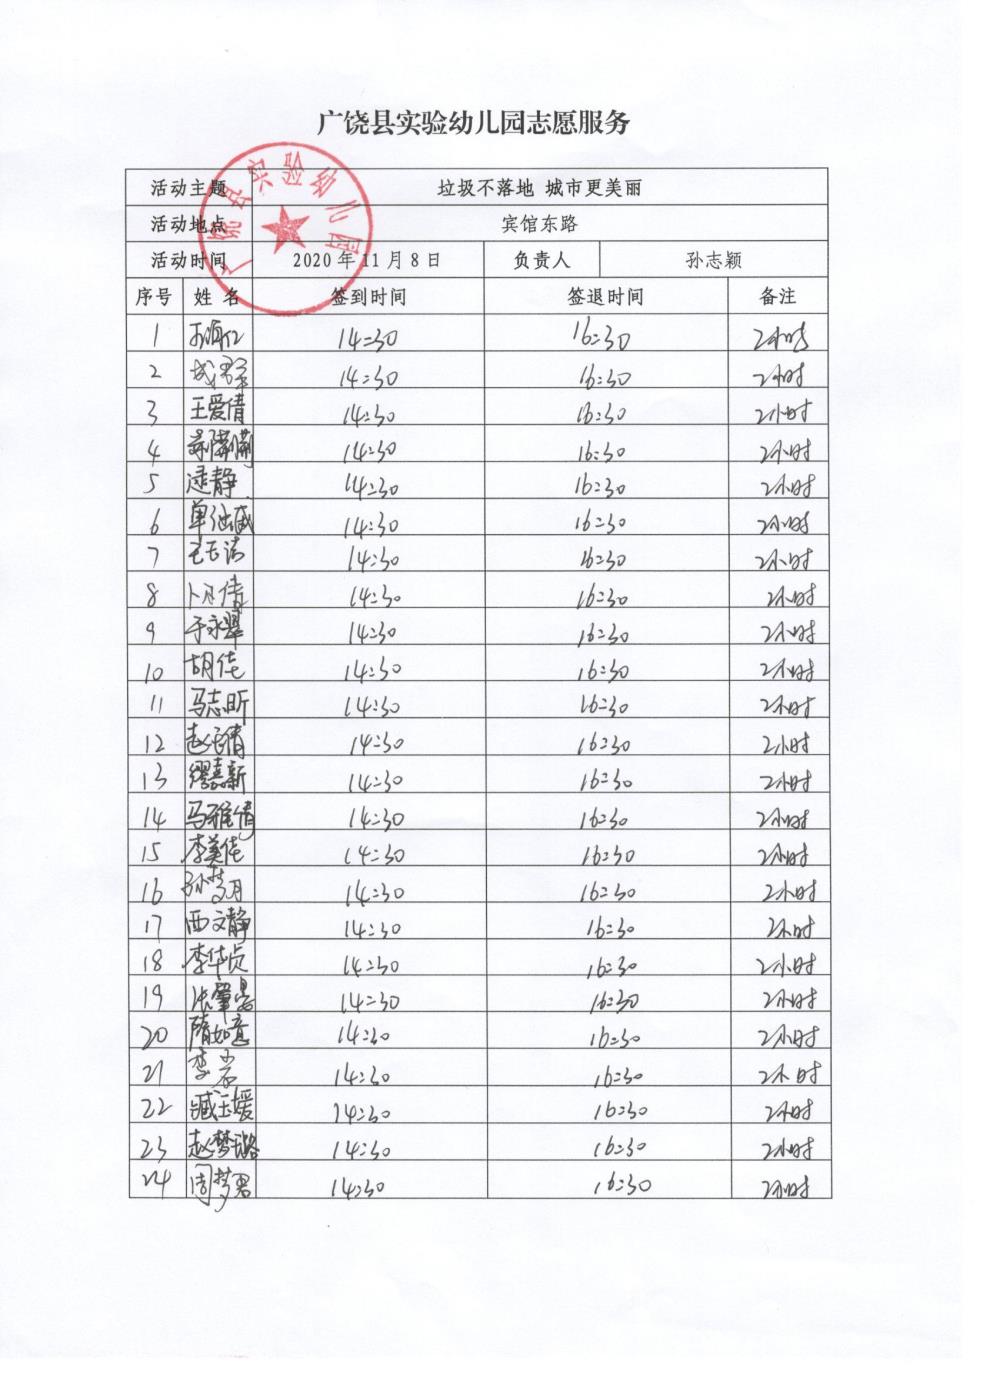 广饶县实验幼儿园志愿服务
活动主题 垃圾不落地 城市更美丽
活动地点 宾馆东路
活动时间 2020年11月8日 负责人 孙志颖
广饶县实验幼儿园
序号 姓名 签到时间 签退时间 备注
1 14:30 16:30 2小时
2 14:30 16:30 2小时
3 王爱倩 14:30 16:30 2小时
4 14:30 16:30 2小时
5 逯静 14:30 16:30 2小时
6 14:30 16:30 2小时
7 14:30 16:30 2小时
8 卜月倩 14:30 16:30 2小时
9 于永翠 14:30 16:30 2小时
10 胡佳 14:30 16:30 2小时
11 马志昕 14:30 16:30 2小时
12 14:30 16:30 2小时
13 缪嘉新 14:30 16:30 2小时
14 马雅倩 14:30 16:30 2小时
15 李美佳 14:30 16:30 2小时
16 孙梦月 14:30 16:30 2小时
17 西文静 14:30 16:30 2小时
18 李华贞 14:30 16:30 2小时
19 14:30 16:30 2小时
20 隋如意 14:30 16:30 2小时
21 李岩 14:30 16:30 2小时
22 臧玉媛 14:30 16:30 2小时
23 赵梦璐 14:30 16:30 2小时
24 周梦君 14:30 16:30 2小时